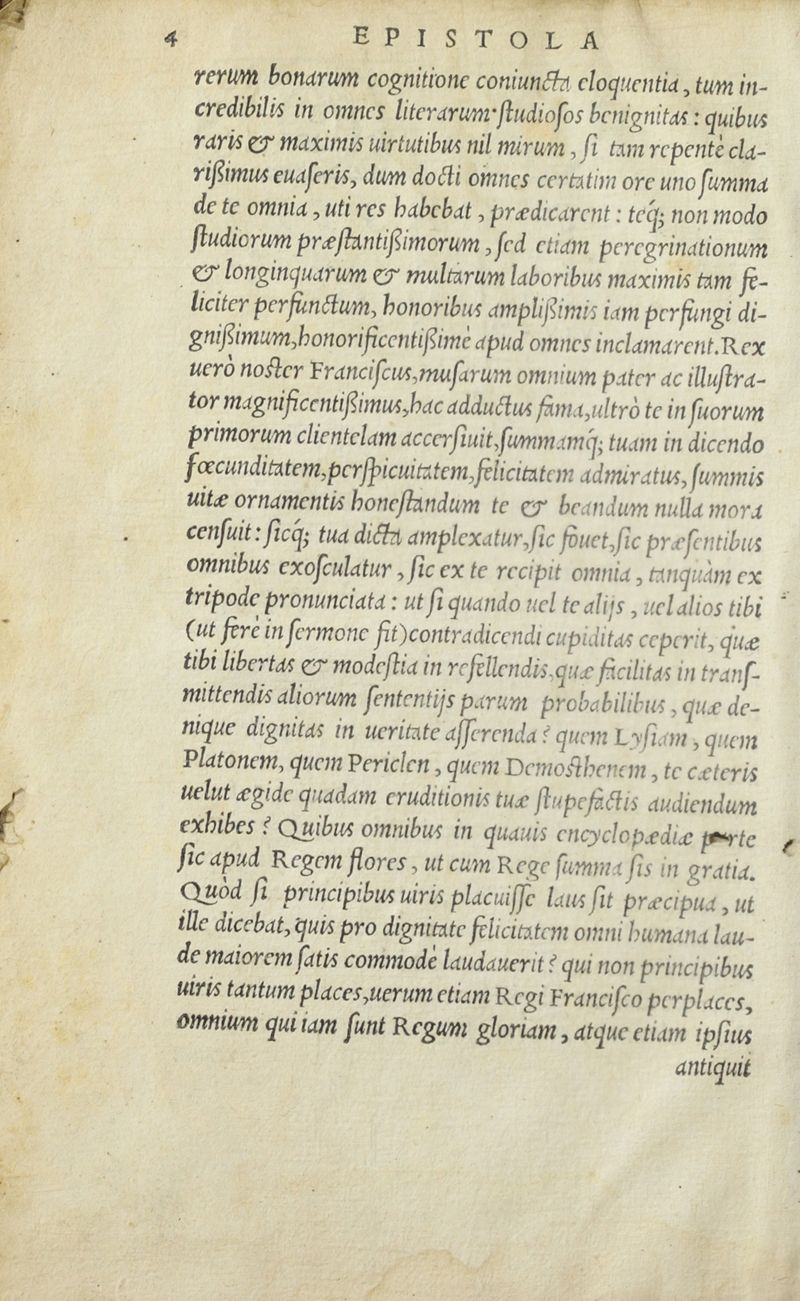 4 EPISTOLA
rerum bonarum cognitione coniuncta eloquentia, tum in-
credibilis in omnes literarum ſtudioſos benignitas : quibus
raris & maximis uirtutibus nil mirum, ſi tam repentè cla-
rißimus euaſeris, dum docti omnes certatim ore uno ſumma
de te omnia, uti res habebat, prædicarent : teq́; non modo
ſtudiorum præſtantißimorum, ſed etiam peregrinationum
& longinquarum & multarum laboribus maximis tam fe-
liciter perfunctum, honoribus amplißimis iam perfungi di-
gnißimum, honorificentißimè apud omnes inclamarent. Rex
uerò noſter Franciſcus, muſarum omnium pater ac illuſtra-
tor magnificentißimus, hac adductus fama, ultrò te in ſuorum
primorum clientelam accerſiuit, ſummamq́; tuam in dicendo
fœcunditatem, perſpicuitatem, felicitatem admiratus, ſummis
uitæ ornamentis honeſtandum te & beandum nulla mora
cenſuit : ſicq́; tua dicta amplexatur, ſic fouet, ſic præſentibus
omnibus exoſculatur, ſic ex te recipit omnia, tanquàm ex
tripode pronunciata : ut ſi quando uel te alijs, uel alios tibi
(ut ferè in ſermone fit) contradicendi cupiditas ceperit, quæ
tibi libertas & modeſtia in refellendis, quæ facilitas in tranſ-
mittendis aliorum ſententijs parum probabilibus, quæ de-
nique dignitas in ueritate aſſerenda ? quem Lyſiam, quem
Platonem, quem Periclen, quem Demoſthenem, te cæteris
uelut ægide quadam eruditionis tuæ ſtupefactis audiendum
exhibes ? Quibus omnibus in quauis encyclopædiæ parte
ſic apud Regem flores, ut cum Rege ſumma ſis in gratia.
Quòd ſi principibus uiris placuiſſe laus ſit præcipua, ut
ille dicebat, quis pro dignitate felicitatem omni humana lau-
de maiorem ſatis commodè laudauerit ? qui non principibus
uiris tantum places, uerum etiam Regi Franciſco perplaces,
omnium qui iam ſunt Regum gloriam, atque etiam ipſius
antiquit